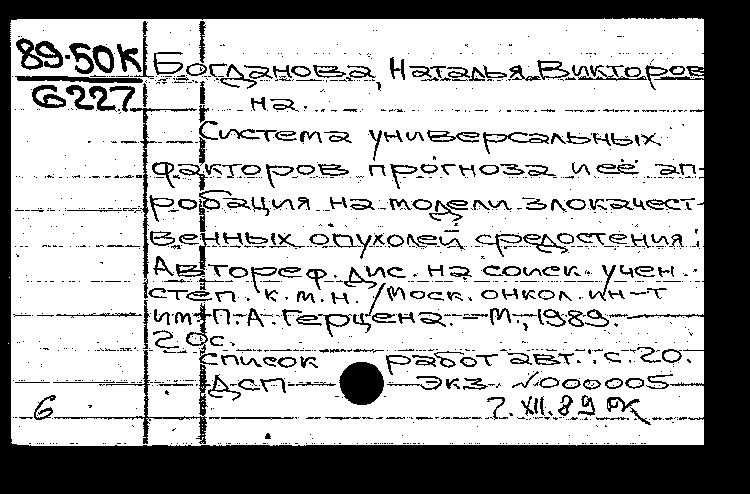 89-50К
Б227
Богданова, Наталья Викторов
на.
Система универсальных
факторов прогноза и её ап-
робация на модели злокачест-
венных опухолей средостения:
Автореф. дис. на соиск. учен.
степ. к.м.н. / Моск. онкол. ин-т
им. П.А. Герцена. - М., 1989. -
20с.
список работ авт.: с. 20.
ДСП Экз. №000005
б
7.XII.89